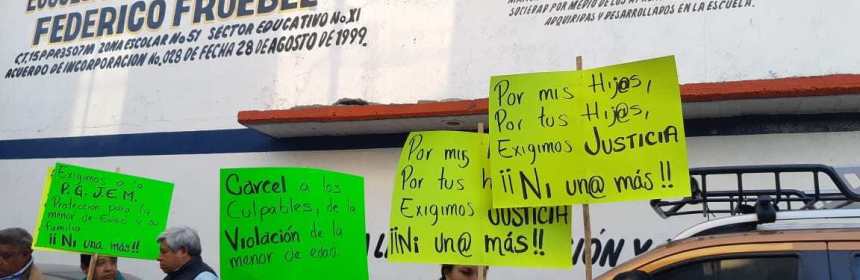 FEDERICO FRUEBEL
CT.15PPR3507M ZONA ESCOLAR No.51 SECTOR EDUCATIVO No.XI
ACUERDO DE INCORPORACION No.028 DE FECHA 28 DE AGOSTO DE 1999.
SOCIEDAD POR MEDIO DE LOS
ADQUIRIDAS Y DESARROLLADOS EN LA ESCUELA.
Exigimos a la
P. G. J.E.M.
Protección para la
menor de y a
familia
¡¡Ni una más!!
Carcel a los
Culpables, de la
Violación de la
menor de edad.
Por mis
Por tus h
Exigimos
¡¡Ni un@ más!!
Por mis Hij@s,
Por tus Hij@s,
Exigimos JUSTICIA
¡¡Ni un@ más!!
JUSTICIA